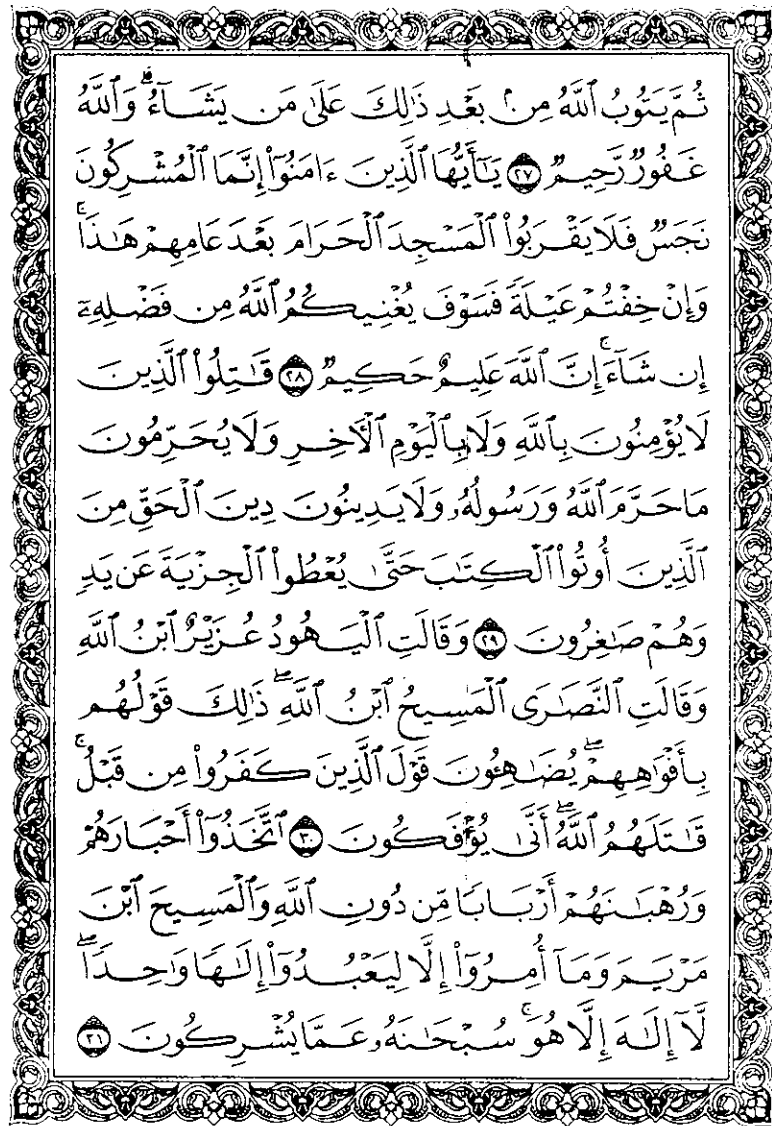 ثُمَّ يَتُوبُ ٱللَّهُ مِنۢ بَعْدِ ذَٰلِكَ عَلَىٰ مَن يَشَآءُ ۗ وَٱللَّهُ
غَفُورٌ رَّحِيمٌ ٢٧ يَٰٓأَيُّهَا ٱلَّذِينَ ءَامَنُوٓا۟ إِنَّمَا ٱلْمُشْرِكُونَ
نَجَسٌ فَلَا يَقْرَبُوا۟ ٱلْمَسْجِدَ ٱلْحَرَامَ بَعْدَ عَامِهِمْ هَٰذَا ۚ
وَإِنْ خِفْتُمْ عَيْلَةً فَسَوْفَ يُغْنِيكُمُ ٱللَّهُ مِن فَضْلِهِۦٓ
إِن شَآءَ ۚ إِنَّ ٱللَّهَ عَلِيمٌ حَكِيمٌ ٢٨ قَٰتِلُوا۟ ٱلَّذِينَ
لَا يُؤْمِنُونَ بِٱللَّهِ وَلَا بِٱلْيَوْمِ ٱلْأَخِرِ وَلَا يُحَرِّمُونَ
مَا حَرَّمَ ٱللَّهُ وَرَسُولُهُۥ وَلَا يَدِينُونَ دِينَ ٱلْحَقِّ مِنَ
ٱلَّذِينَ أُوتُوا۟ ٱلْكِتَٰبَ حَتَّىٰ يُعْطُوا۟ ٱلْجِزْيَةَ عَن يَدٍ
وَهُمْ صَٰغِرُونَ ٢٩ وَقَالَتِ ٱلْيَهُودُ عُزَيْرٌ ٱبْنُ ٱللَّهِ
وَقَالَتِ ٱلنَّصَٰرَى ٱلْمَسِيحُ ٱبْنُ ٱللَّهِ ۖ ذَٰلِكَ قَوْلُهُم
بِأَفْوَٰهِهِمْ ۖ يُضَٰهِـُٔونَ قَوْلَ ٱلَّذِينَ كَفَرُوا۟ مِن قَبْلُ ۚ
قَٰتَلَهُمُ ٱللَّهُ ۖ أَنَّىٰ يُؤْفَكُونَ ٣٠ ٱتَّخَذُوٓا۟ أَحْبَارَهُمْ
وَرُهْبَٰنَهُمْ أَرْبَابًا مِّن دُونِ ٱللَّهِ وَٱلْمَسِيحَ ٱبْنَ
مَرْيَمَ وَمَآ أُمِرُوٓا۟ إِلَّا لِيَعْبُدُوٓا۟ إِلَٰهًا وَٰحِدًا ۖ
لَّآ إِلَٰهَ إِلَّا هُوَ ۚ سُبْحَٰنَهُۥ عَمَّا يُشْرِكُونَ ٣١